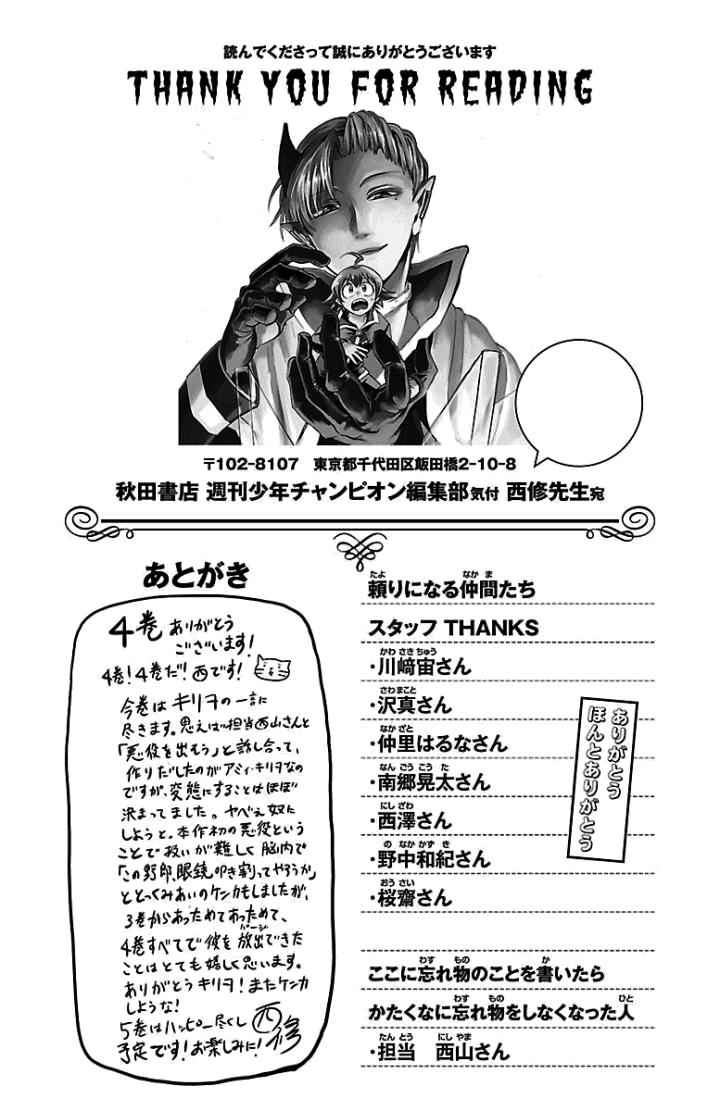 読んでくださって誠にありがとうございます
THANK YOU FOR READING
〒102-8107　東京都千代田区飯田橋2-10-8
秋田書店 週刊少年チャンピオン編集部気付 西修先生宛
あとがき
4巻 ありがとう
ございます!
4巻!4巻だ!西です!
今巻は キリヲの一言に
尽きます。思えば担当西山さんと
「悪役を出もう」と話し合って、
作りだしたのがアミィ・キリヲなの
ですが、変態にすることはほぼ
決まってました。ヤベェ奴に
しようと。本作初の悪役という
ことで扱いが難しく脳内で
「この野郎、眼鏡叩き割ってやろうか」
ととっくみあいのケンカもしましたが、
3巻からあっためてあっためて、
4巻すべてで彼を放出できた
パージ
ことはとても嬉しく思います。
ありがとうキリヲ!またケンカ
しような!
5巻はハッピー尽くし
予定です!お楽しみに!
西修
たよ なかま
頼りになる仲間たち
スタッフ THANKS
かわさきちゅう
・川﨑宙さん
さわまこと
・沢真さん
なかざと
・仲里はるなさん
なんごうこうた
・南郷晃太さん
にしざわ
・西澤さん
のなかかずき
・野中和紀さん
おうさい
・桜齋さん
ありがとう
ほんとありがとう
わす もの か
ここに忘れ物のことを書いたら
わす もの ひと
かたくなに忘れ物をしなくなった人
たんとう にしやま
・担当　西山さん